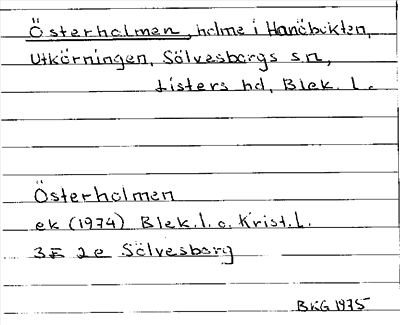 Österholmen, holme i Hanöbukten,
Utkörningen, Sölvesborgs sn,
Listers hd, Blek. l.
Österholmen
ek (1974) Blek.l. o. Krist.l.
3E 2e Sölvesborg
BKG 1975